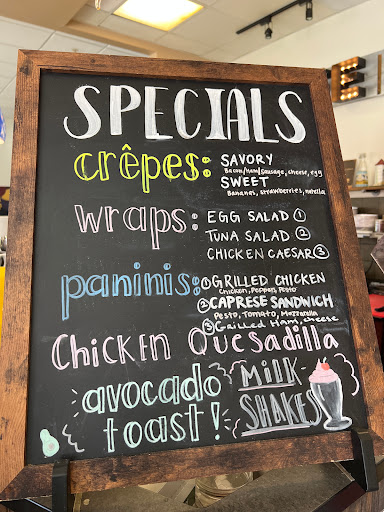 SPECIALS
crêpes:
SAVORY
Bacon/Ham/Sausage, cheese, egg
SWEET
Bananas, strawberries, nutella
wraps:
EGG SALAD ①
TUNA SALAD ②
CHICKEN CAESAR ③
paninis:
① GRILLED CHICKEN
Chicken, Peppers, Pesto
② CAPRESE SANDWICH
Pesto, Tomato, Mozzarella
③ Grilled Ham, cheese
Chicken Quesadilla
avocado
toast!
MILK
SHAKES